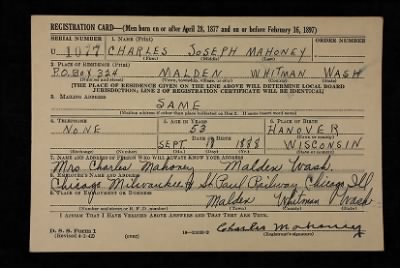 REGISTRATION CARD—(Men born on or after April 28, 1877 and on or before February 16, 1897)
SERIAL NUMBER 1. NAME (Print) ORDER NUMBER
U 1077 CHARLES JOSEPH MAHONEY
(First) (Middle) (Last)
2. PLACE OF RESIDENCE (Print)
P.O. BOX 324 MALDEN WHITMAN WASH
(Number and street) (Town, township, village, or city) (County) (State)
[THE PLACE OF RESIDENCE GIVEN ON THE LINE ABOVE WILL DETERMINE LOCAL BOARD
JURISDICTION; LINE 2 OF REGISTRATION CERTIFICATE WILL BE IDENTICAL]
3. MAILING ADDRESS
SAME
(Mailing address if other than place indicated on line 2. If same insert word same)
4. TELEPHONE 5. AGE IN YEARS 6. PLACE OF BIRTH
NONE 53 HANOVER
DATE OF BIRTH (Town or county)
SEPT 18 1888 WISCONSIN
(Exchange) (Number) (Mo.) (Day) (Yr.) (State or country)
7. NAME AND ADDRESS OF PERSON WHO WILL ALWAYS KNOW YOUR ADDRESS
Mrs Charles Mahoney Malden Wash.
8. EMPLOYER'S NAME AND ADDRESS
Chicago Milwaukee & St Paul Railway Chicago Ill
9. PLACE OF EMPLOYMENT OR BUSINESS
Malden Whitman Wash
(Number and street or R. F. D. number) (Town) (County) (State)
I AFFIRM THAT I HAVE VERIFIED ABOVE ANSWERS AND THAT THEY ARE TRUE.
D. S. S. Form 1
(Revised 4-1-42) (over) Charles Mahoney
(Registrant's signature)